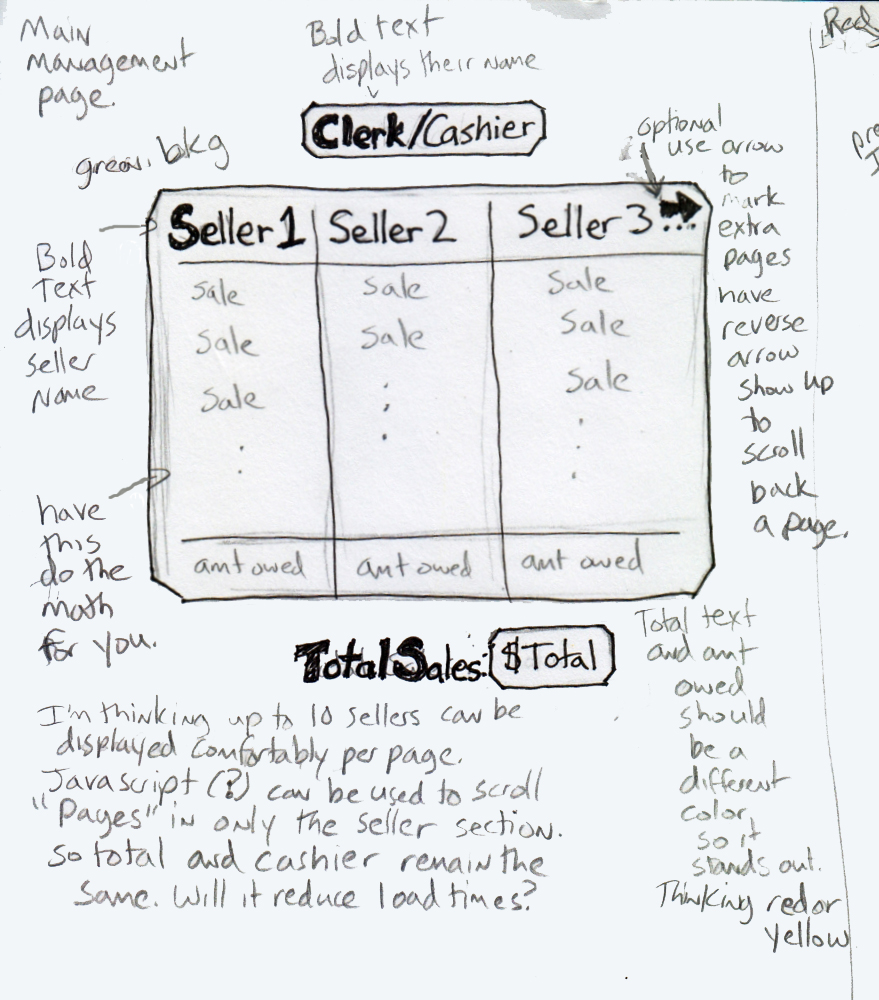 Main
management
page.
Bold text
displays their name
Clerk/Cashier
green. bkg
optional
use arrow
to
mark
extra
pages
have
reverse
arrow
show up
to
scroll
back
a page.
Red
Bold
Text
displays
seller
Name
Seller 1
Seller 2
Seller 3
...
sale
sale
sale
sale
sale
sale
sale
sale
amt owed
amt owed
amt owed
have
this
do the
math
for you.
Total Sales: $Total
Total text
and amt
owed
should
be a
different
color,
so it
stands out.
Thinking red or
yellow
I'm thinking up to 10 sellers can be
displayed comfortably per page.
Javascript (?) can be used to scroll
"Pages" in only the seller section.
so total and cashier remain the
same. Will it reduce load times?